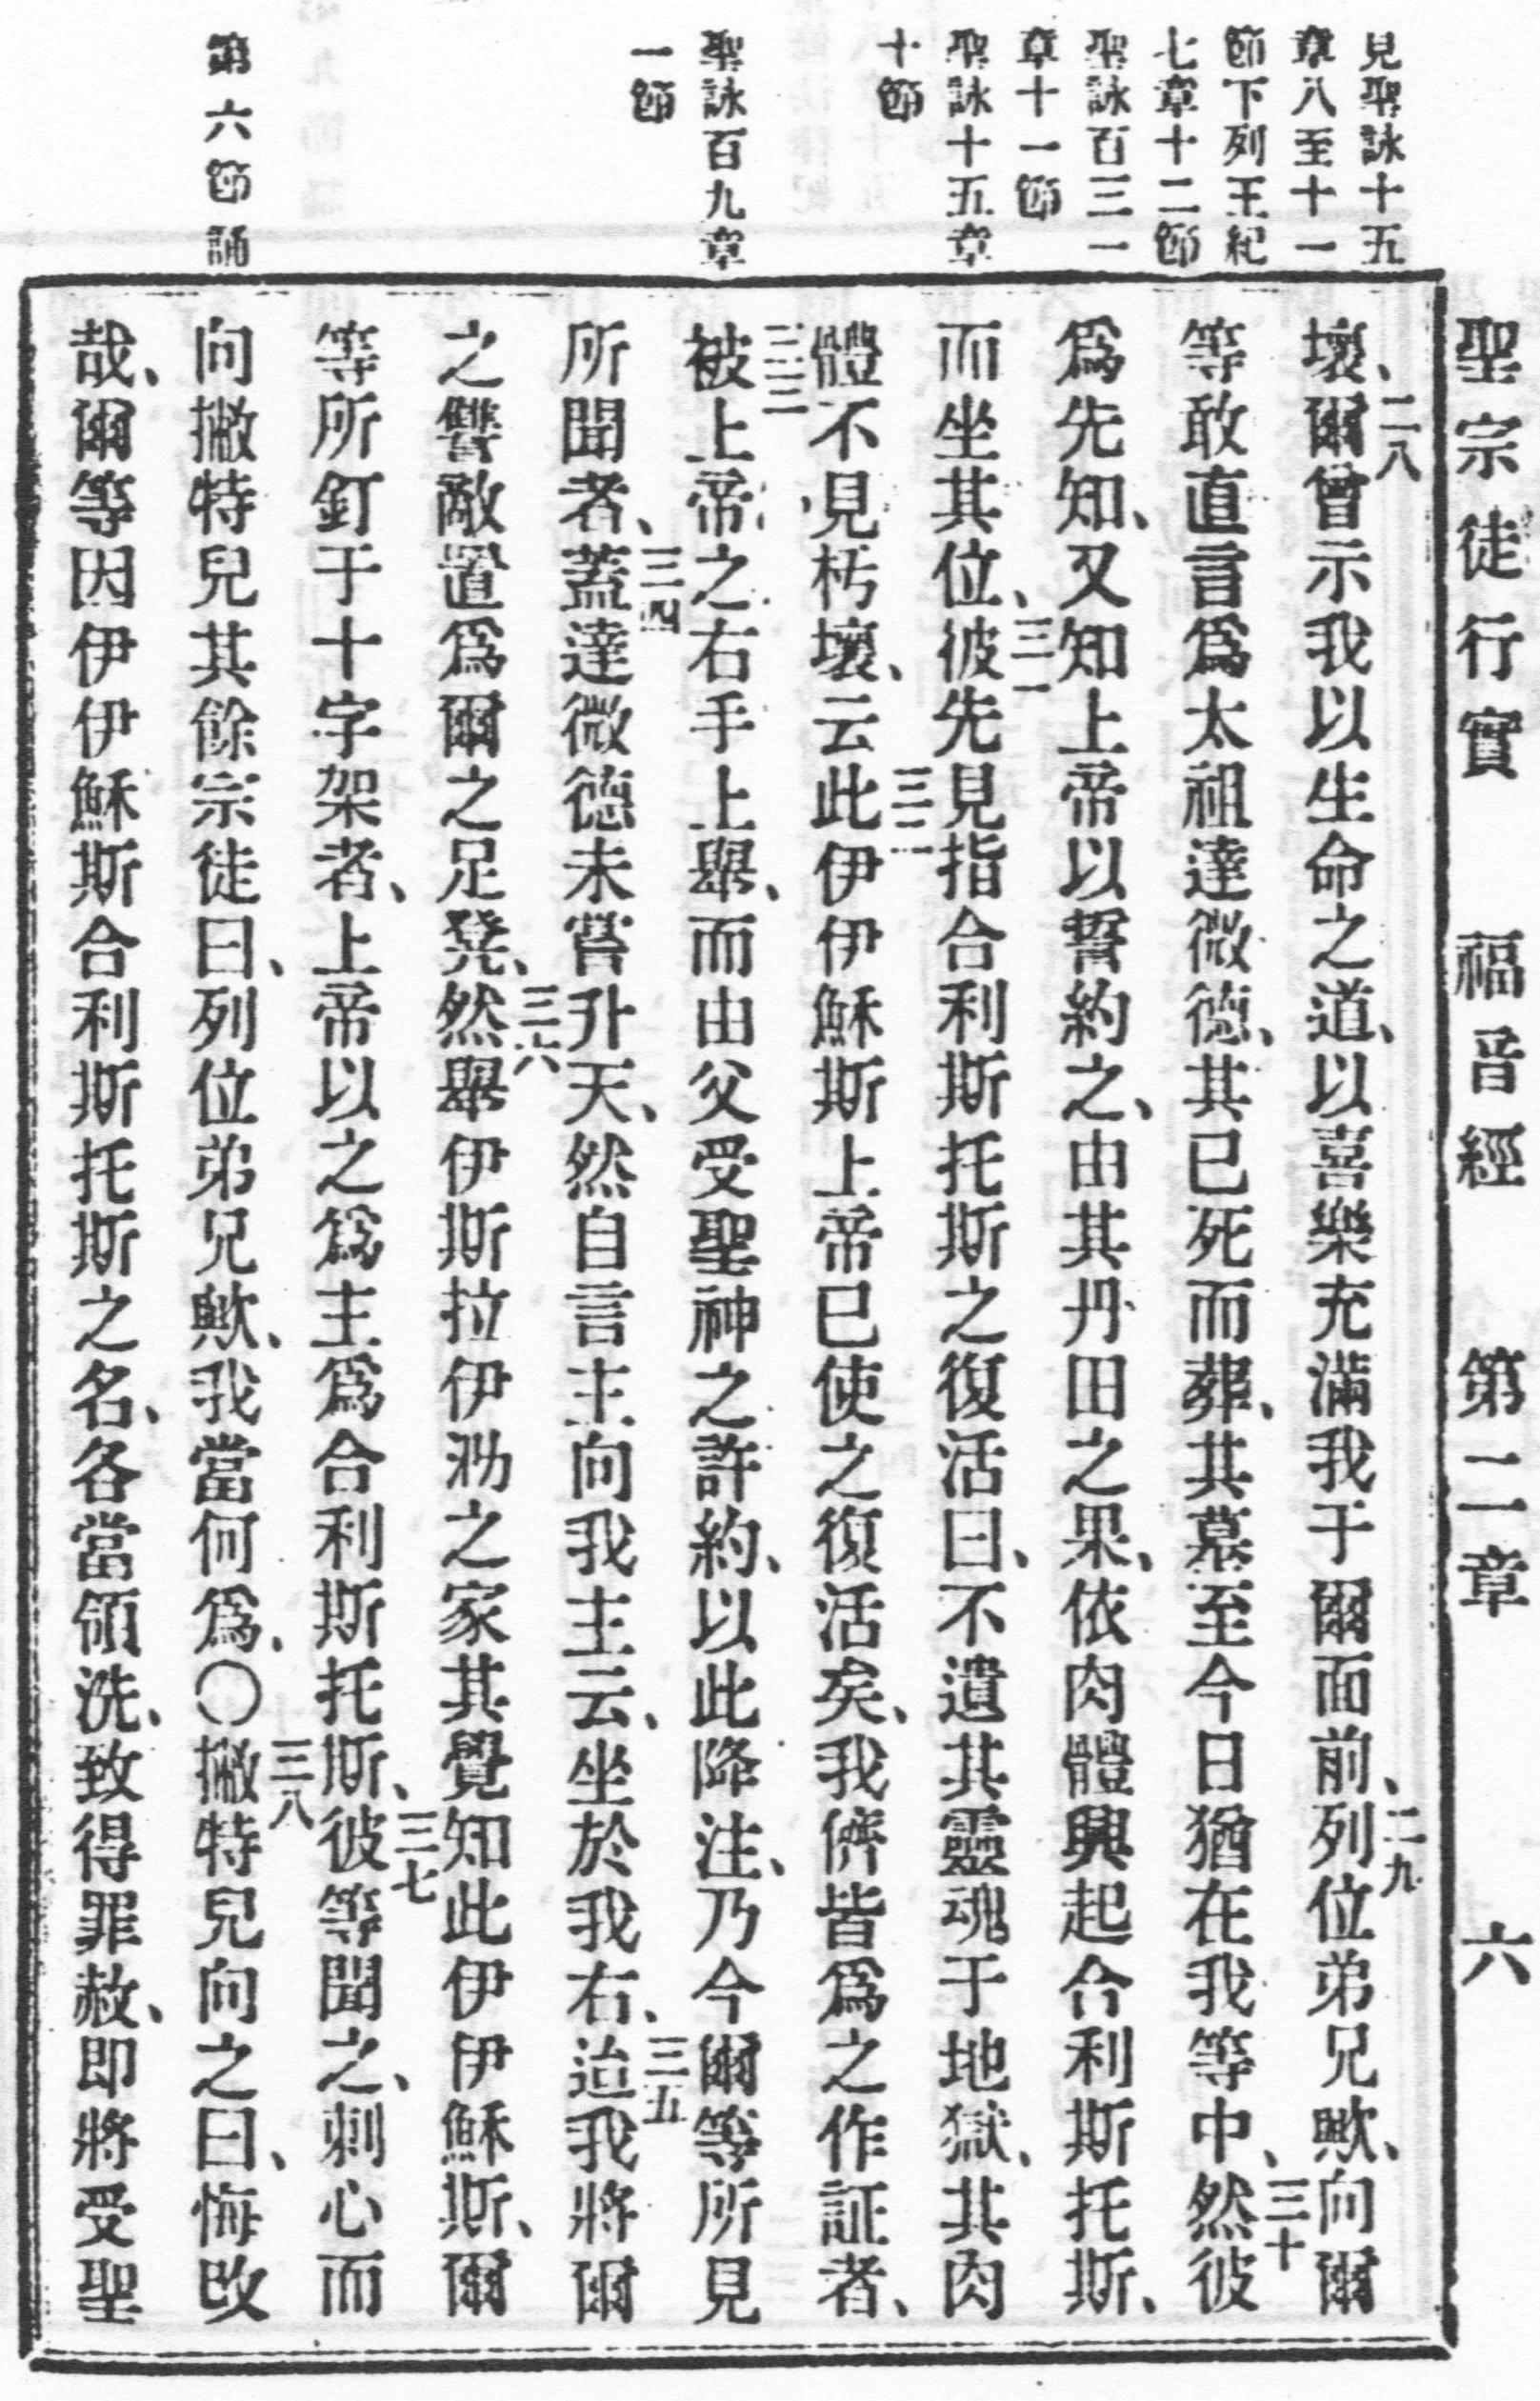 聖宗徒行實 福音經 第二章 六
見聖詠十五
章八至十一
節下列王紀
七章十二節
聖詠百三一
章十一節
聖詠十五章
十節
聖詠百九章
一節
第六節誦
壞、二八爾曾示我以生命之道、以喜樂充滿我于爾面前、二九列位弟兄歟、向爾
等敢直言爲太祖達微德、其已死而葬、其墓至今日猶在我等中、三十然彼
爲先知、又知上帝以誓約之、由其丹田之果、依肉體興起合利斯托斯、
而坐其位、三一彼先見指合利斯托斯之復活曰、不遺其靈魂于地獄、其肉
體不見朽壞、云三二此伊伊穌斯上帝已使之復活矣、我儕皆爲之作証者、
三三被上帝之右手上舉、而由父受聖神之許約、以此降注、乃今爾等所見
所聞者、三四蓋達微德未嘗升天、然自言主向我主云、坐於我右、三五迨我將爾
之讐敵置爲爾之足凳、三六然舉伊斯拉伊泐之家其覺知此伊伊穌斯、爾
等所釘于十字架者、上帝以之爲主爲合利斯托斯、三七彼等聞之、刺心而
向撇特兒其餘宗徒曰、列位弟兄歟、我當何爲、〇三八撇特兒向之曰、悔改
哉、爾等因伊伊穌斯合利斯托斯之名、各當領洗、致得罪赦、即將受聖